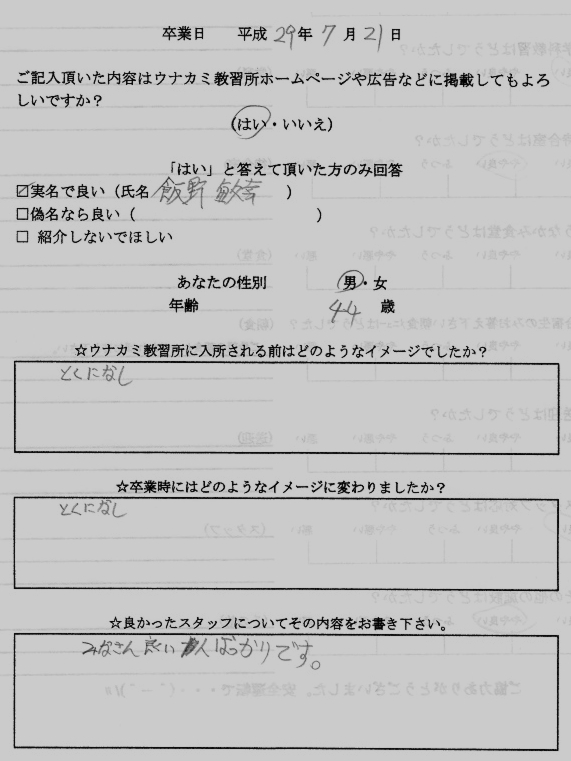 卒業日 平成 29年 7月 21日
ご記入頂いた内容はウナカミ教習所ホームページや広告などに掲載してもよろ
しいですか？
(はい・いいえ)
「はい」と答えて頂いた方のみ回答
☑実名で良い（氏名 飯野 敏幸 ）
□偽名なら良い（ ）
□ 紹介しないでほしい
あなたの性別 男・女
年齢 44 歳
☆ウナカミ教習所に入所される前はどのようなイメージでしたか？
とくになし
☆卒業時にはどのようなイメージに変わりましたか？
とくになし
☆良かったスタッフについてその内容をお書き下さい。
みなさん良い人ばっかりです。